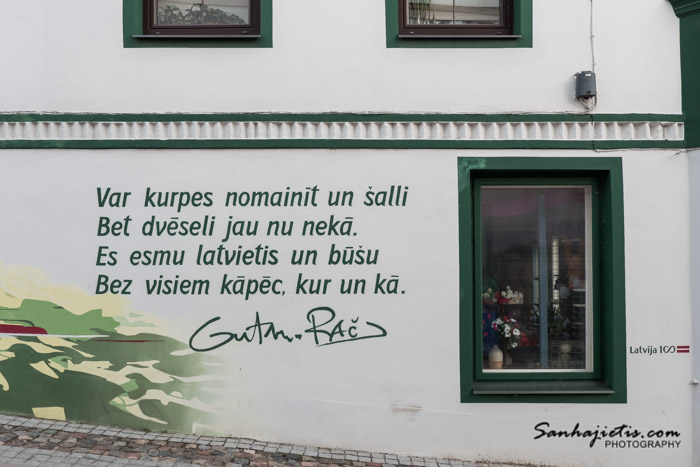 Var kurpes nomainīt un šalli
Bet dvēseli jau nu nekā.
Es esmu latvietis un būšu
Bez visiem kāpēc, kur un kā.
Gutm. Rač
Latvija 100
Sanhajietis.com
PHOTOGRAPHY